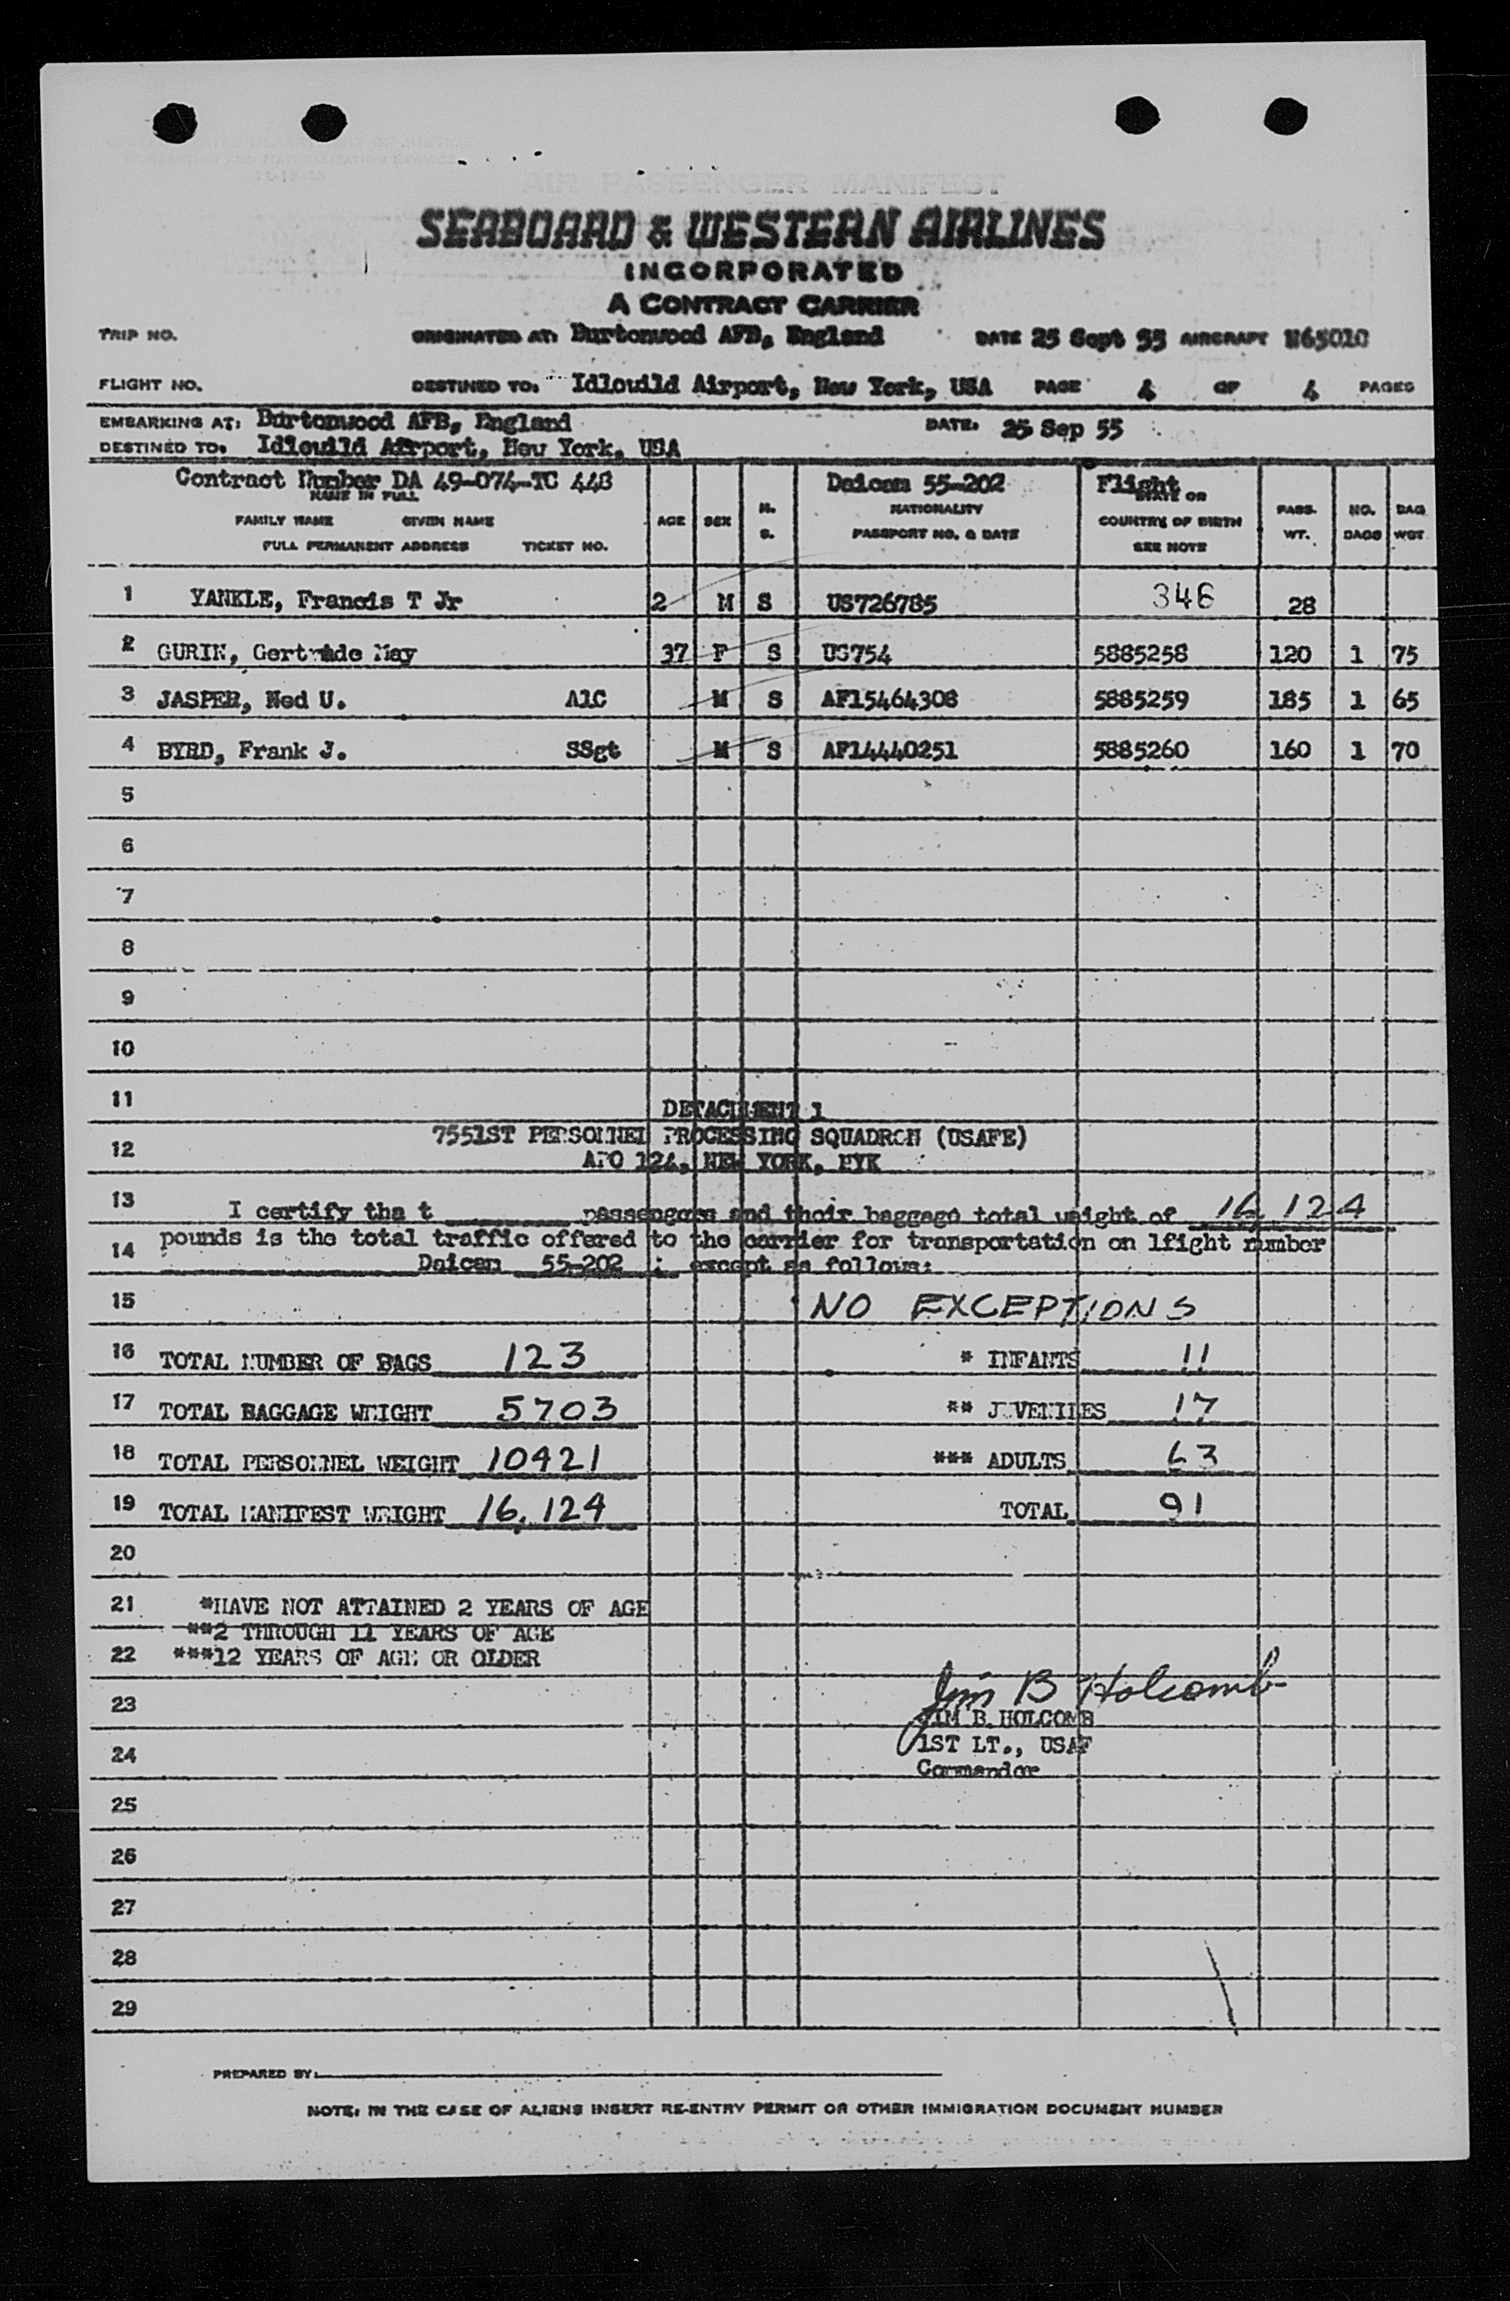 SEABOARD & WESTERN AIRLINES
INCORPORATED
A CONTRACT CARRIER
TRIP NO. ORIGINATED AT: Burtonwood AFB, England DATE 25 Sept 55 AIRCRAFT N6501C
FLIGHT NO. DESTINED TO: Idlewild Airport, New York, USA PAGE 4 OF 4 PAGES
EMBARKING AT: Burtonwood AFB, England DATE: 25 Sep 55
DESTINED TO: Idlewild Airport, New York, USA
Contract Number DA 49-074-TC 448 Daicom 55-202 Flight
NAME IN FULL NATIONALITY STATE OR
FAMILY NAME GIVEN NAME AGE SEX M. S. PASSPORT NO. & DATE COUNTRY OF BIRTH PASS. WT. NO. BAGS BAG WGT
FULL PERMANENT ADDRESS TICKET NO. SEE NOTE
1 YANKLE, Francis T Jr 2 M S US726785 346 28
2 GURIN, Gertrude May 37 F S US754 5885258 120 1 75
3 JASPER, Ned U. A1C M S AF15464308 5885259 185 1 65
4 BYRD, Frank J. SSgt M S AF14440251 5885260 160 1 70
5
6
7
8
9
10
11 DETACHMENT 1
12 7551ST PERSONNEL PROCESSING SQUADRON (USAFE)
APO 124, NEW YORK, NYK
13 I certify tha t passengers and their baggage total weight of 16,124
14 pounds is the total traffic offered to the carrier for transportation on lfight number
Daicom 55-202 : except as follows:
15 NO EXCEPTIONS
16 TOTAL NUMBER OF BAGS 123 * INFANTS 11
17 TOTAL BAGGAGE WEIGHT 5703 ** JUVENILES 17
18 TOTAL PERSONNEL WEIGHT 10421 *** ADULTS 63
19 TOTAL MANIFEST WEIGHT 16,124 TOTAL 91
20
21 *HAVE NOT ATTAINED 2 YEARS OF AGE
**2 THROUGH 11 YEARS OF AGE
22 ***12 YEARS OF AGE OR OLDER
Jim B Holcomb
23 JIM B. HOLCOMB
24 1ST LT., USAF
Commander
25
26
27
28
29
PREPARED BY:
NOTE: IN THE CASE OF ALIENS INSERT RE-ENTRY PERMIT OR OTHER IMMIGRATION DOCUMENT NUMBER